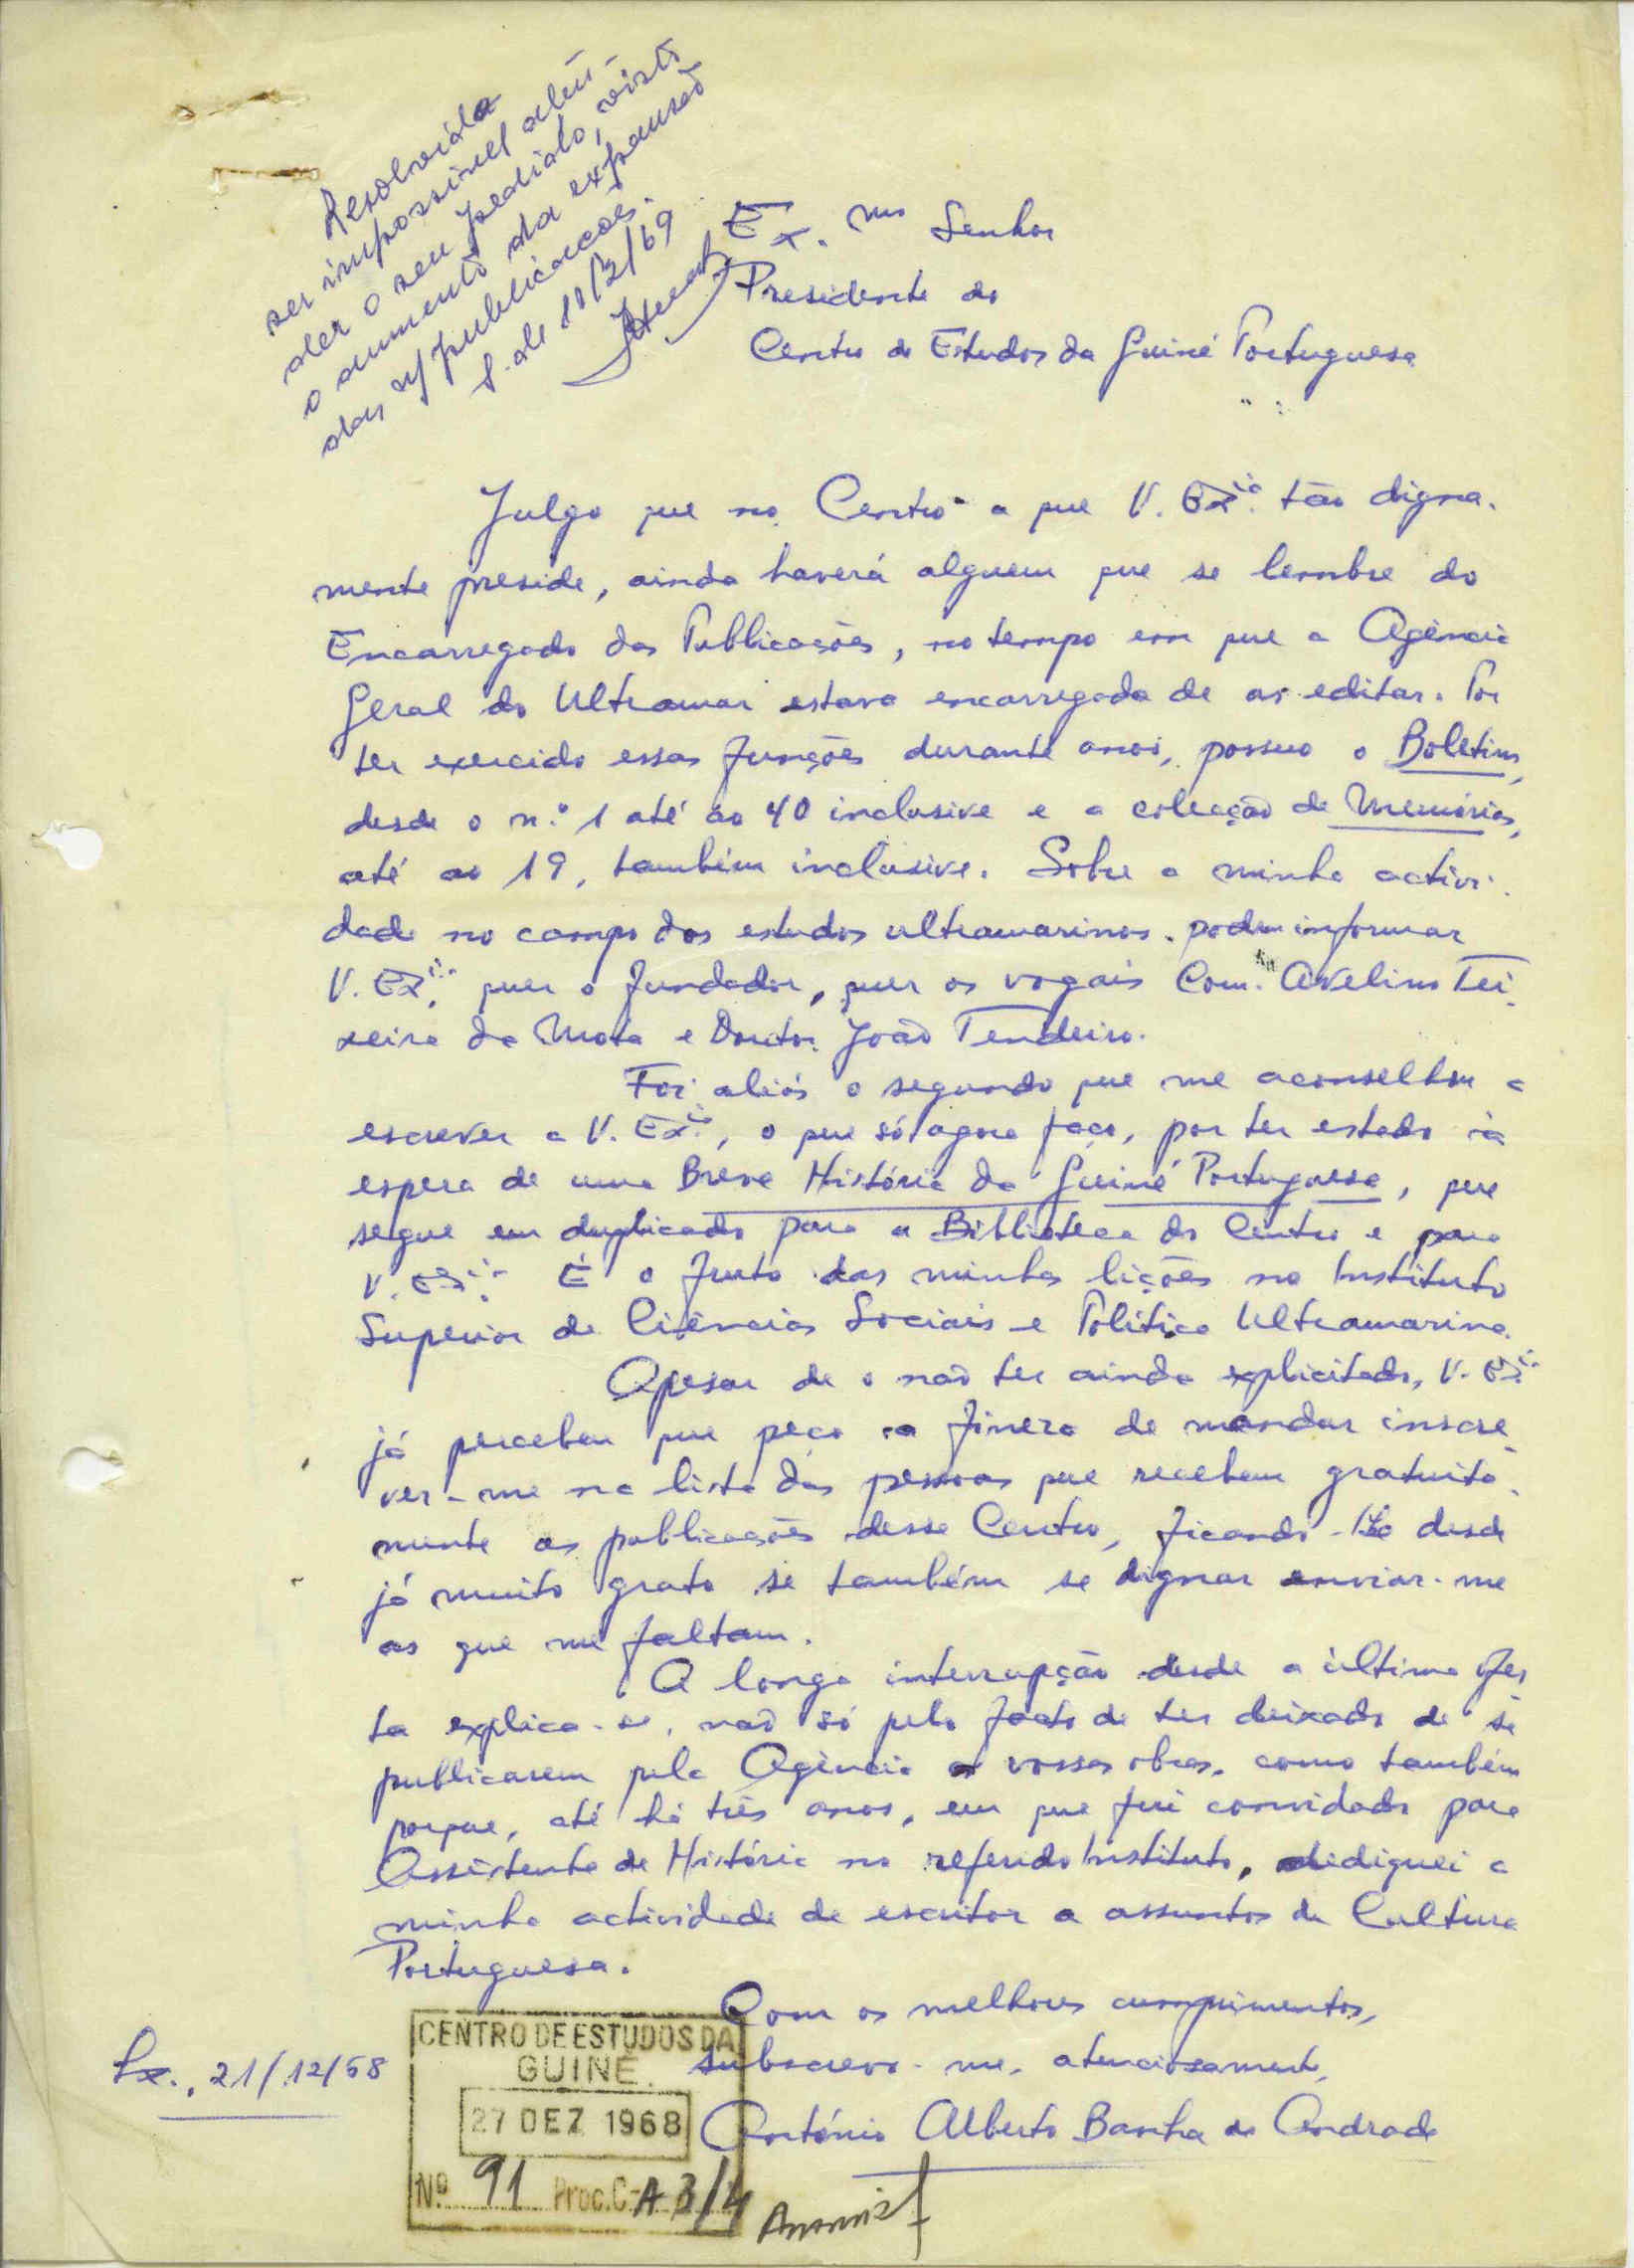 Resolvida
ser impossivel aten-
der o seu pedido, visto
o aumento da expansão
das n/ publicações.
S. de 11/2/69
Ex.mo Senhor
Presidente do
Centro de Estudos da Guiné Portuguesa
Julgo que no Centro a que V. Ex.ia tão digna-
mente preside, ainda haverá alguem que se lembre do
Encarregado das Publicações, no tempo em que a Agência
Geral do Ultramar estava encarregada de as editar. Por
ter exercido essas funções durante anos, possuo o Boletim,
desde o n.º 1 até ao 40 inclusive e a colecção de Memórias,
até ao 19, também inclusive. Sobre a minha activi-
dade no campo dos estudos ultramarinos podem informar
V. Ex.ia quer o fundador, quer os vogais Com. Avelino Tei-
xeira da Mota e Doutor João Tendeiro.
Foi aliás o segundo que me aconselhou a
escrever a V. Ex.ia, o que só agora faço, por ter estado à
espera de uma Breve História da Guiné Portuguesa, que
segue em duplicado para a Biblioteca do Centro e para
V. Ex.ia É o fruto das minhas lições no Instituto
Superior de Ciências Sociais e Politica Ultramarina.
Apesar de o não ter ainda explicitado, V. Ex.ia
já percebeu que peço a fineza de mandar inscre-
ver-me na lista das pessoas que recebem gratuita-
mente as publicações desse Centro, ficando-lhe desde
já muito grato se também se dignar enviar-me
as que me faltam.
A longa interrupção desde a última ofer-
ta explica-se, não só pelo facto de ter deixado de se
publicarem pela Agência as vossas obras, como também
porque, até há três anos, em que fui convidado para
Assistente de História no referido Instituto, dediquei a
minha actividade de escritor a assuntos de Cultura
Portuguesa.
Com os melhores cumprimentos,
subscrevo-me, atenciosamente,
António Alberto Banha de Andrade
Lx., 21/12/68
CENTRO DE ESTUDOS DA
GUINÉ
27 DEZ 1968
Nº 91 Proc. C-A 3/4